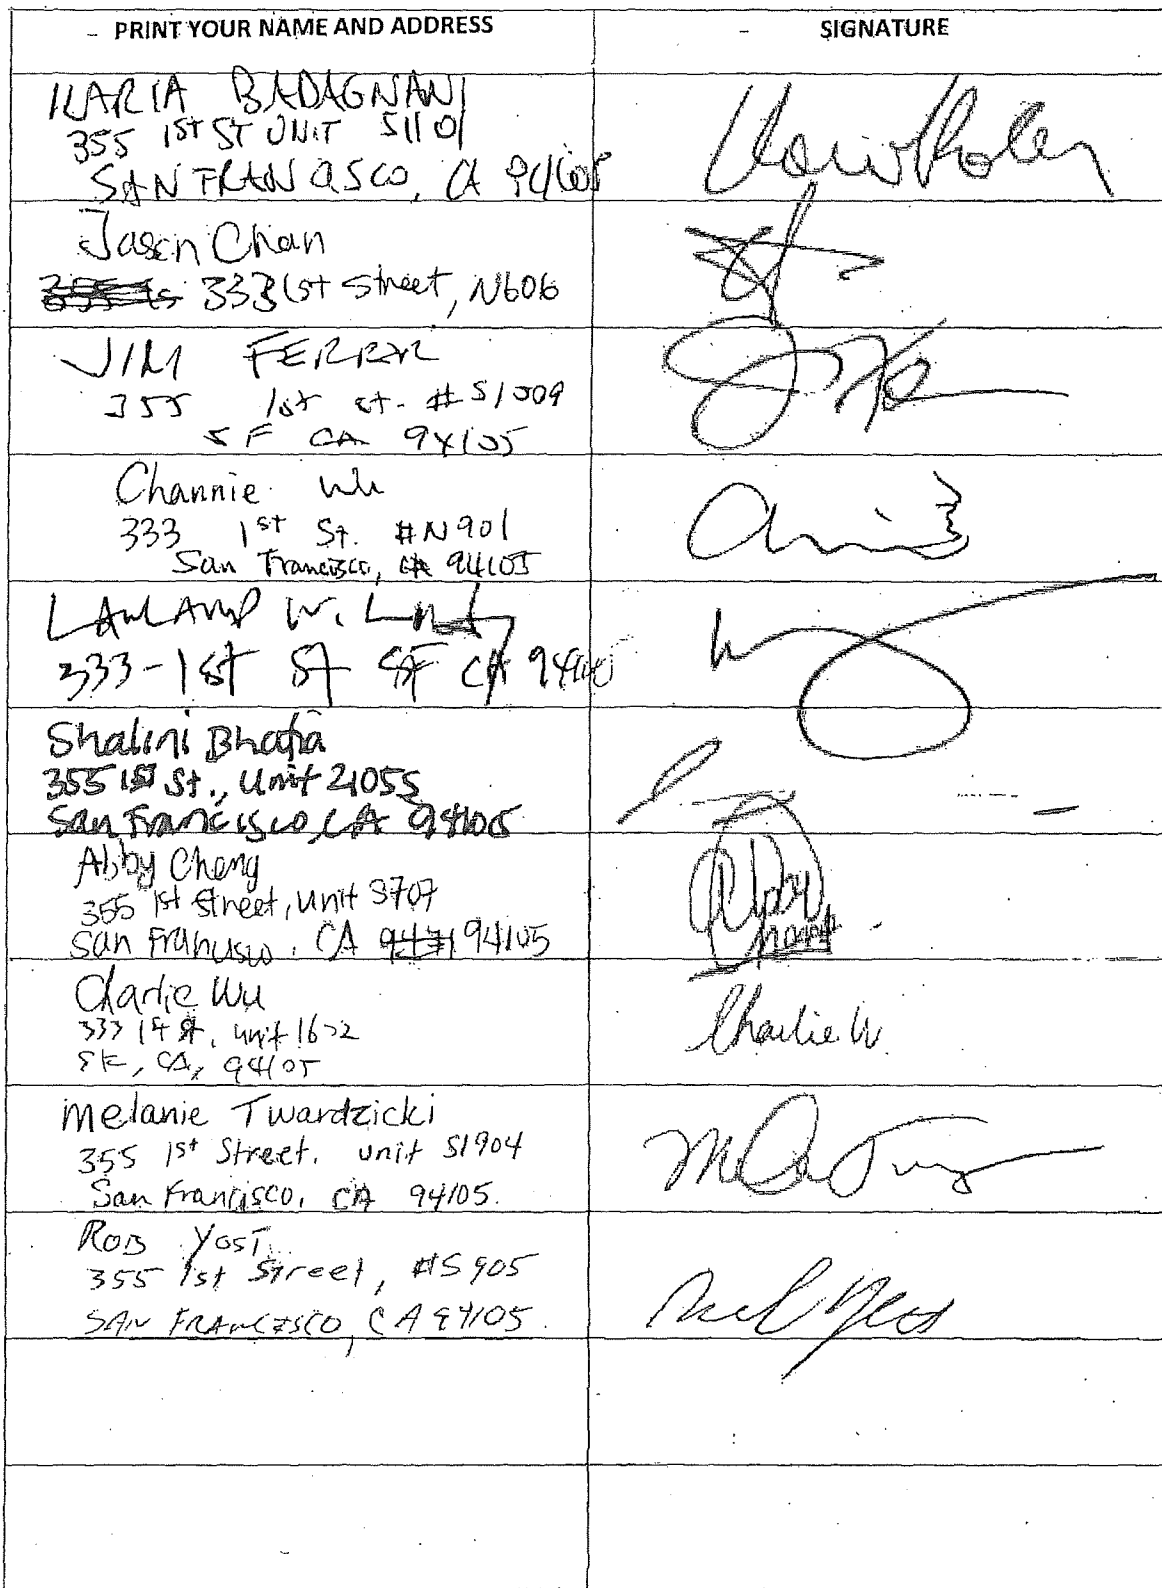 PRINT YOUR NAME AND ADDRESS
SIGNATURE
ILARIA BADAGNANI
355 1ST ST UNIT S1101
SAN FRANCISCO, CA 94105
Jason Chan
333 1st Street, N606
JIM FERRAR
355 1st st. # S1509
SF CA 94105
Channie Wu
333 1st St. #N901
San Francisco, CA 94105
W.
333-1st St SF CA 94105
Shalini Bhatia
355 1st St., Unit 2105S
San Francisco, CA 94105
Abby Cheng
355 1st Street, Unit S707
San Francisco, CA 94105
Abby
Charlie Wu
333 1st St, unit 1622
SF, CA, 94105
Charlie W.
Melanie Twardzicki
355 1st Street. unit S1904
San Francisco, CA 94105.
ROB YOST
355 1st Street, #S905
SAN FRANCISCO, CA 94105.